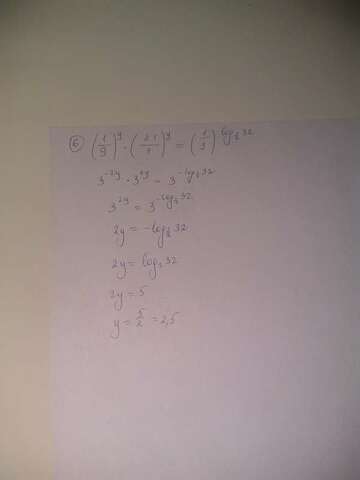 6 (1/9)^y · (21/1)^y = (1/3)^log_2 32
3^-2y · 3^4y = 3^-log_2 32
3^2y = 3^-log_2 32
2y = -log_2 32
2y = log_2 32
2y = 5
y = 5/2 = 2,5